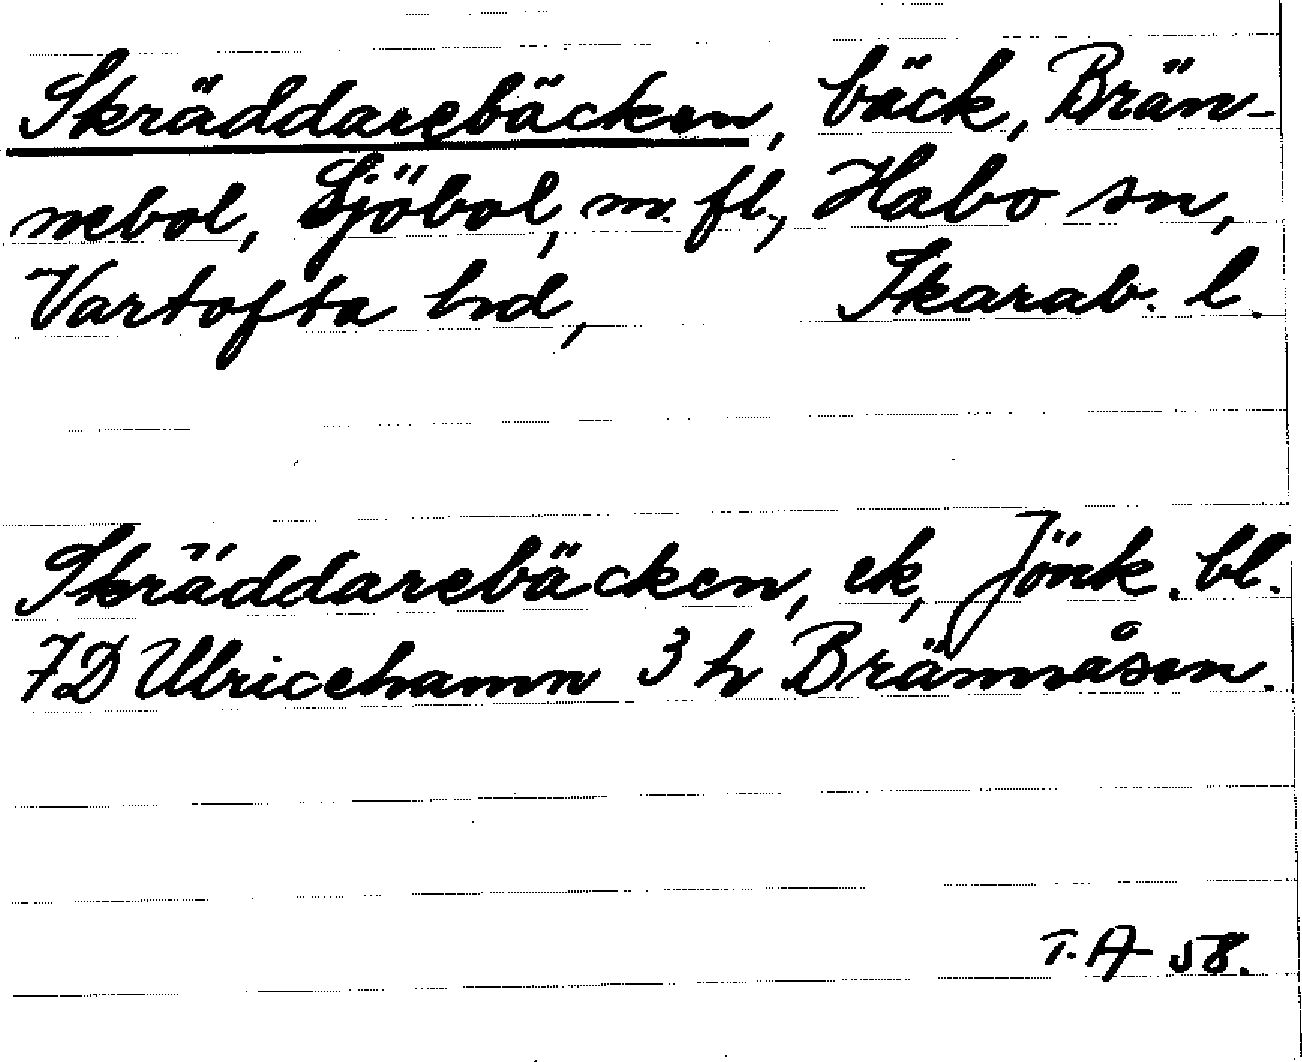 Skräddarebäcken, bäck, Brän-
nebol, Sjöbol, m. fl., Habo sn,
Vartofta hd, Skarab. l.
Skräddarebäcken, ek, Jönk. bl.
7D Ulricehamn 3 h Brännåsen.
T. A 58.